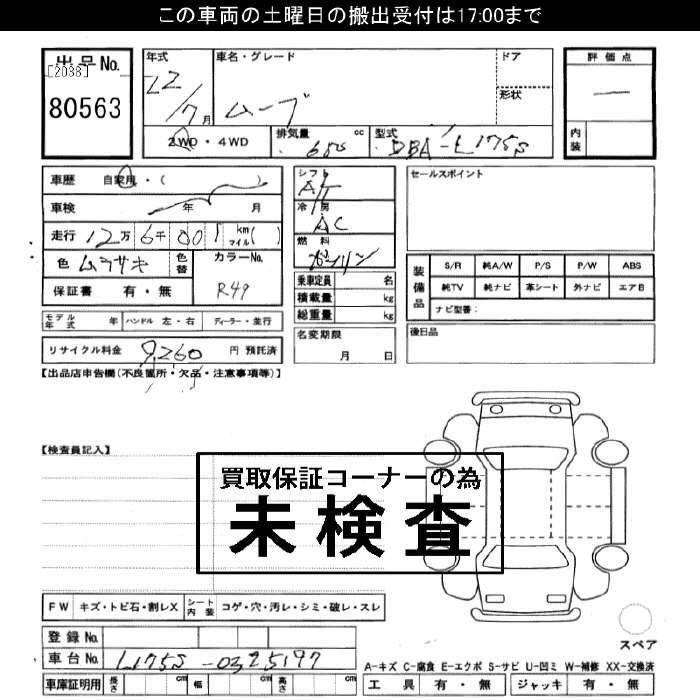 この車両の土曜日の搬出受付は17:00まで
出品No.
[2038]
80563
年式
22/7月
車名・グレード
ムーブ
ドア
形状
評価点
内装
2WD・4WD
排気量 cc
型式
DBA-L175S
車歴 自家用・( )
車検 年 月
走行 12万 6千 001 km マイル( )
色 ムラサキ
色替
カラーNo.
R49
保証書 有・無
モデル年式 年
ハンドル 左・右
ディーラー・並行
リサイクル料金 9,260 円 預託済
シフト
AT
冷房
AC
燃料
ガソリン
乗車定員 名
積載量 kg
総重量 kg
名変期限
月 日
セールスポイント
装備品
S/R 純A/W P/S P/W ABS
純TV 純ナビ 革シート 外ナビ エアB
ナビ型番:
後日品
【出品店申告欄(不良箇所・欠品・注意事項等)】
【検査員記入】
買取保証コーナーの為
未検査
FW キズ・トビ石・割レX
シート内装 コゲ・穴・汚レ・シミ・破レ・スレ
登録No.
車台No. L175S-0325197
車庫証明用 長さ cm 幅 cm 高さ cm
スペア
A-キズ C-腐食 E-エクボ S-サビ U-凹ミ W-補修 XX-交換済
工具 有・無
ジャッキ 有・無